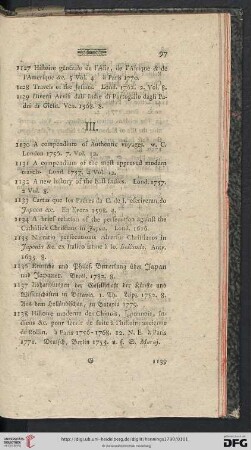 97
1127 Histoire générale de l'Asie, de l'Afrique & de
l'Amerique &c. 5 Vol. 4. à Paris 1770.
1128 Travels in the Jesuits. Lond. 1762. 2 Vol. 8.
1129 Diversi Avisi dall' Indie di Portogallo dagli Pa-
dri di Giesu. Ven. 1568. 8.
III.
1130 A compendium of authentic voyages. w. C.
London 1756. 7 Vol. 12.
1131 A compendium of the most approved modern
travels. Lond. 1757. 2 Vol. 12.
1132 A new history of the Indies. Lond. 1757.
2 Vol. 8.
1133 Cartas que los Padres da C. de I. escriveron do
Japon &c. En Evora 1598. 4.
1134 A brief relation of the persecution against the
Catholick Christians in Japan. Lond. 1616.
1135 Narratio persecutionis adversus Christianos in
Japonia &c. ex italico latine à Io. Antv.
1635. 8.
1136 über Japan
und Japaner. 1782. 8.
1137 Abhandlungen der Gesellschaft der Künste und
Wissenschaften in Batavia. 1. Th. Lpz. 1782. 8.
Aus dem Holländischen, in Batavia 1779.
1138 Histoire moderne des Chinois, Japonnois, In-
diens &c. pour servir de suite à l'histoire ancienne
de Rollin. à Paris 1756-1768. 12. N. E. à Paris
1771. Deutsch, Berlin 1754. u. f. S. Marsy.
G
1139